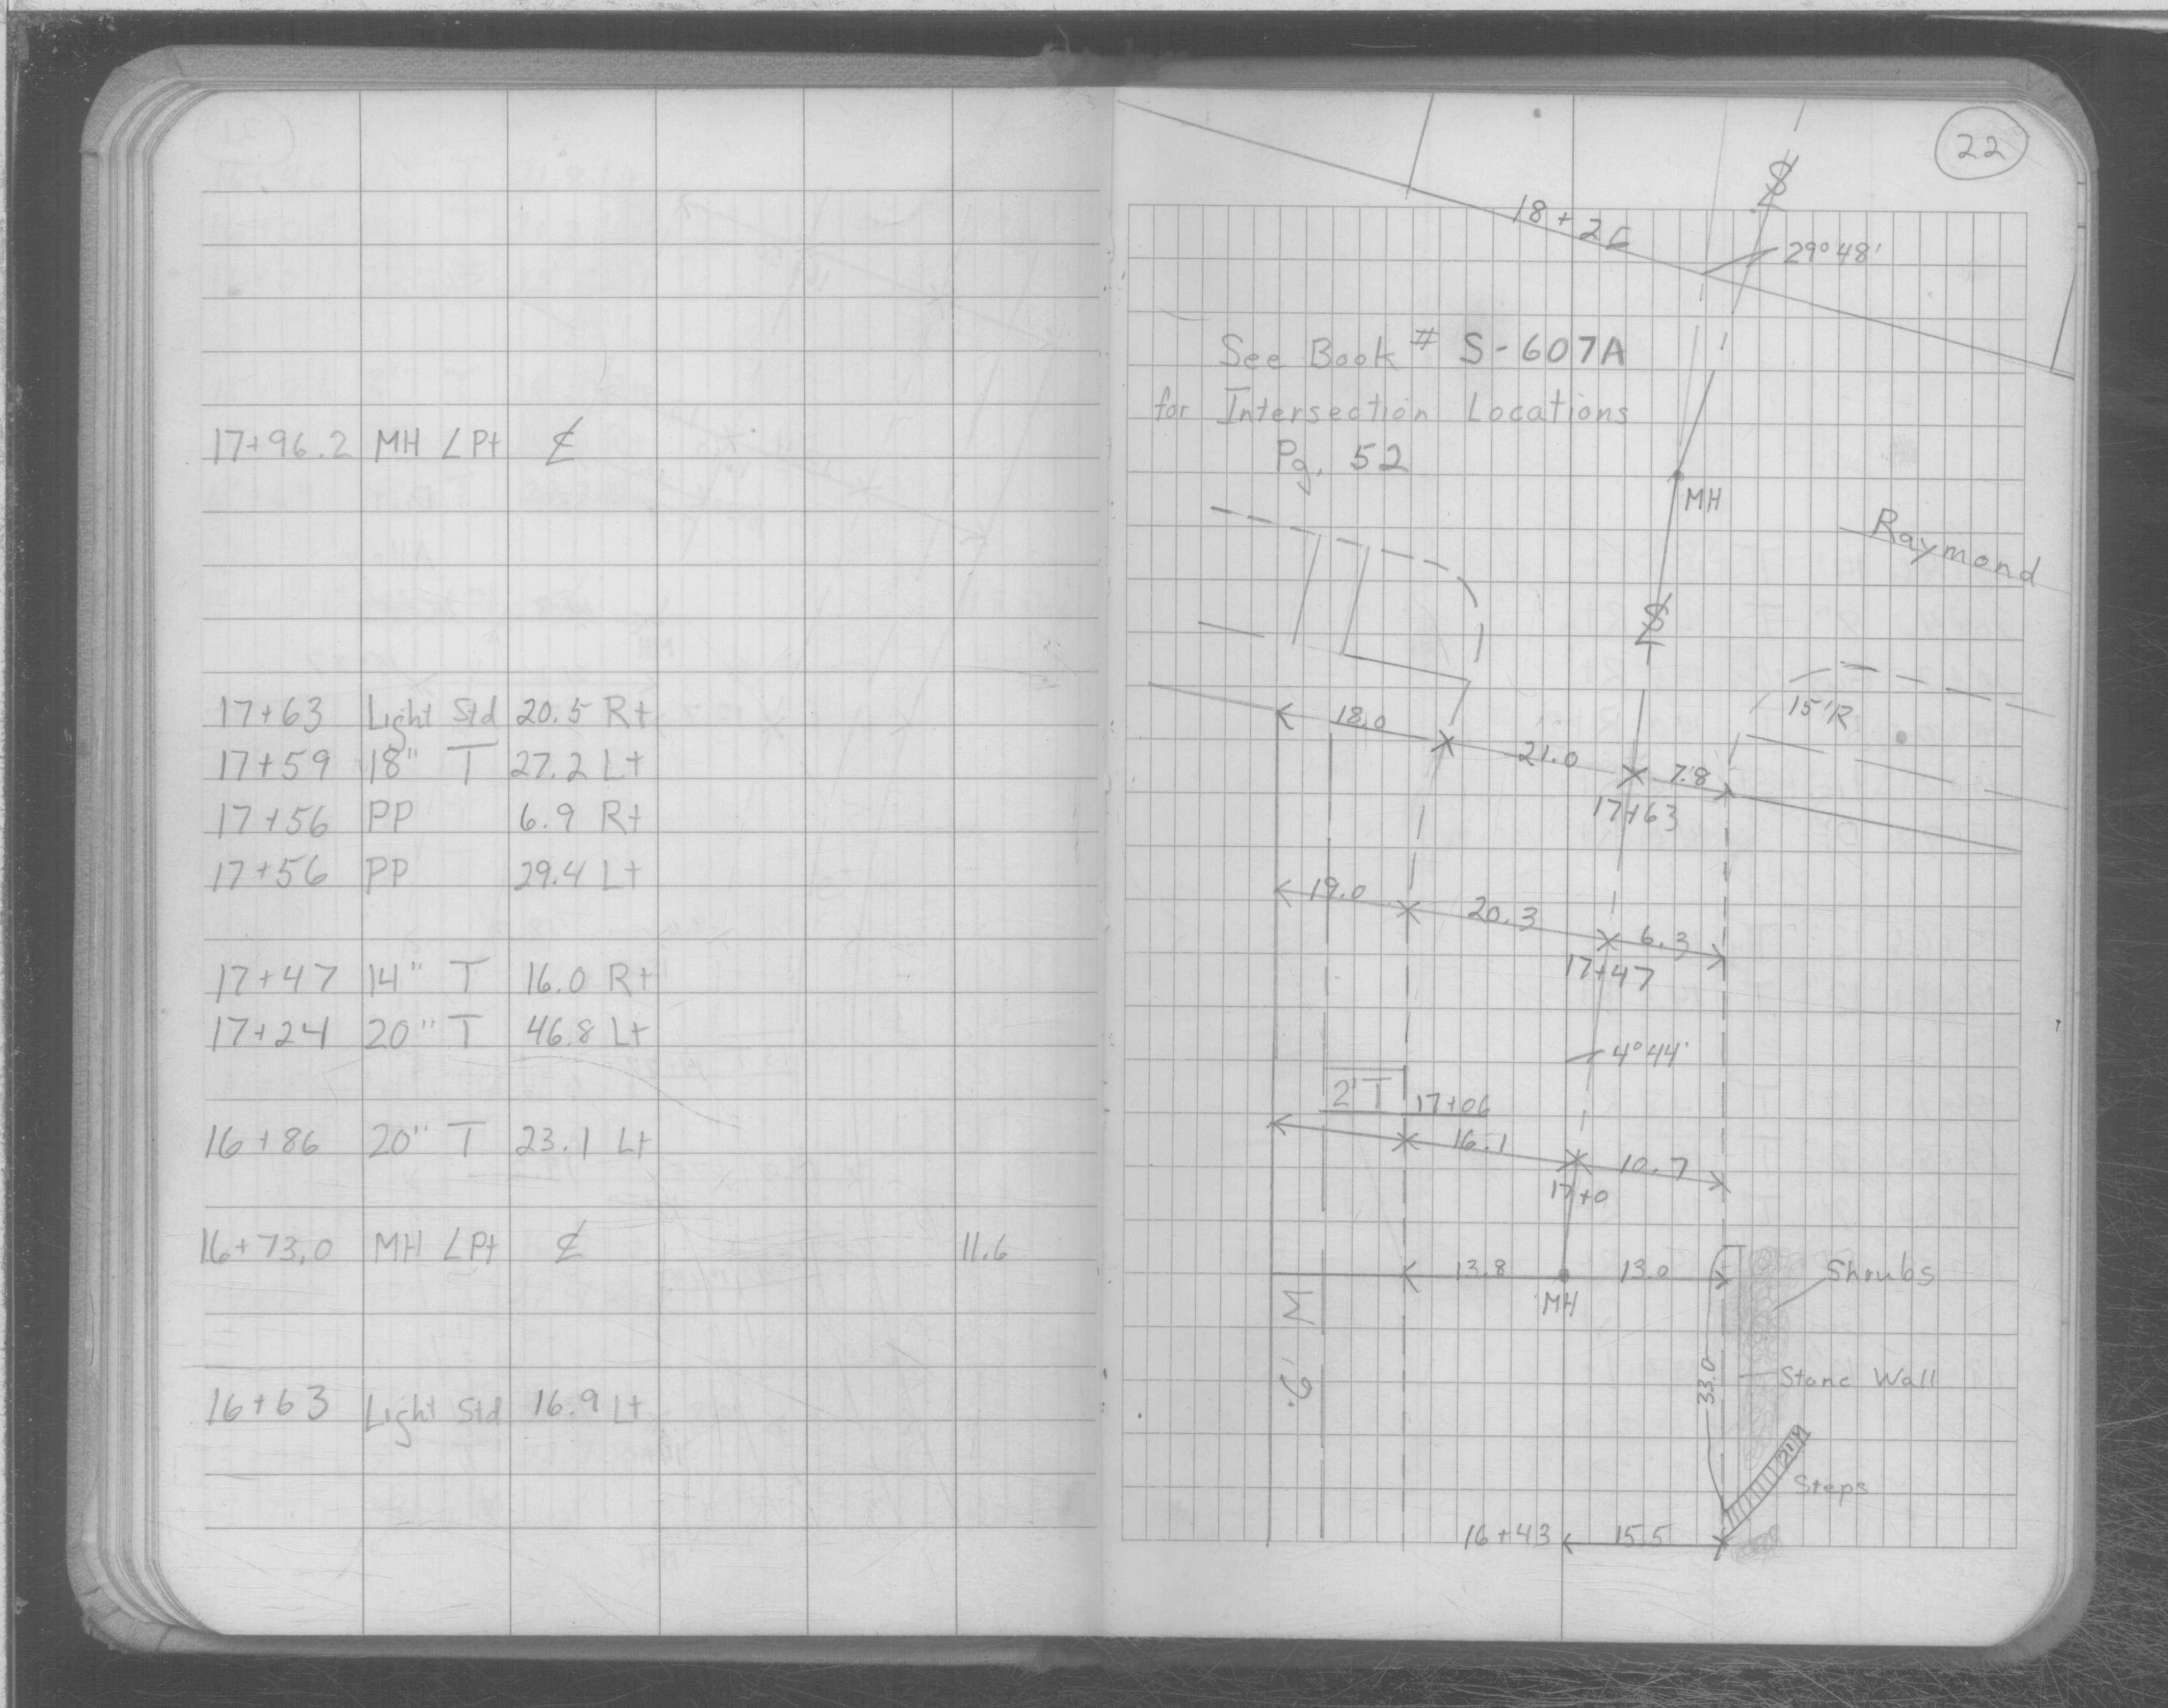 17+96.2 MH ∠Pt ℄
17+63 Light Std 20.5 Rt
17+59 18" T 27.2 Lt
17+56 PP 6.9 Rt
17+56 PP 29.4 Lt
17+47 14" T 16.0 Rt
17+24 20" T 46.8 Lt
16+86 20" T 23.1 Lt
16+73.0 MH ∠Pt ℄ 11.6
16+63 Light Std 16.9 Lt
22
18+26
29°48'
See Book # S-607A
for Intersection Locations
Pg. 52
MH
Raymond
15'R
18.0 21.0 7.8
17+63
19.0 20.3 6.3
17+47
4°44'
2'T 17+06
16.1 10.7
17+0
13.8 13.0
MH
Shrubs
6' M
33.0
Stone Wall
Steps
16+43 15.5